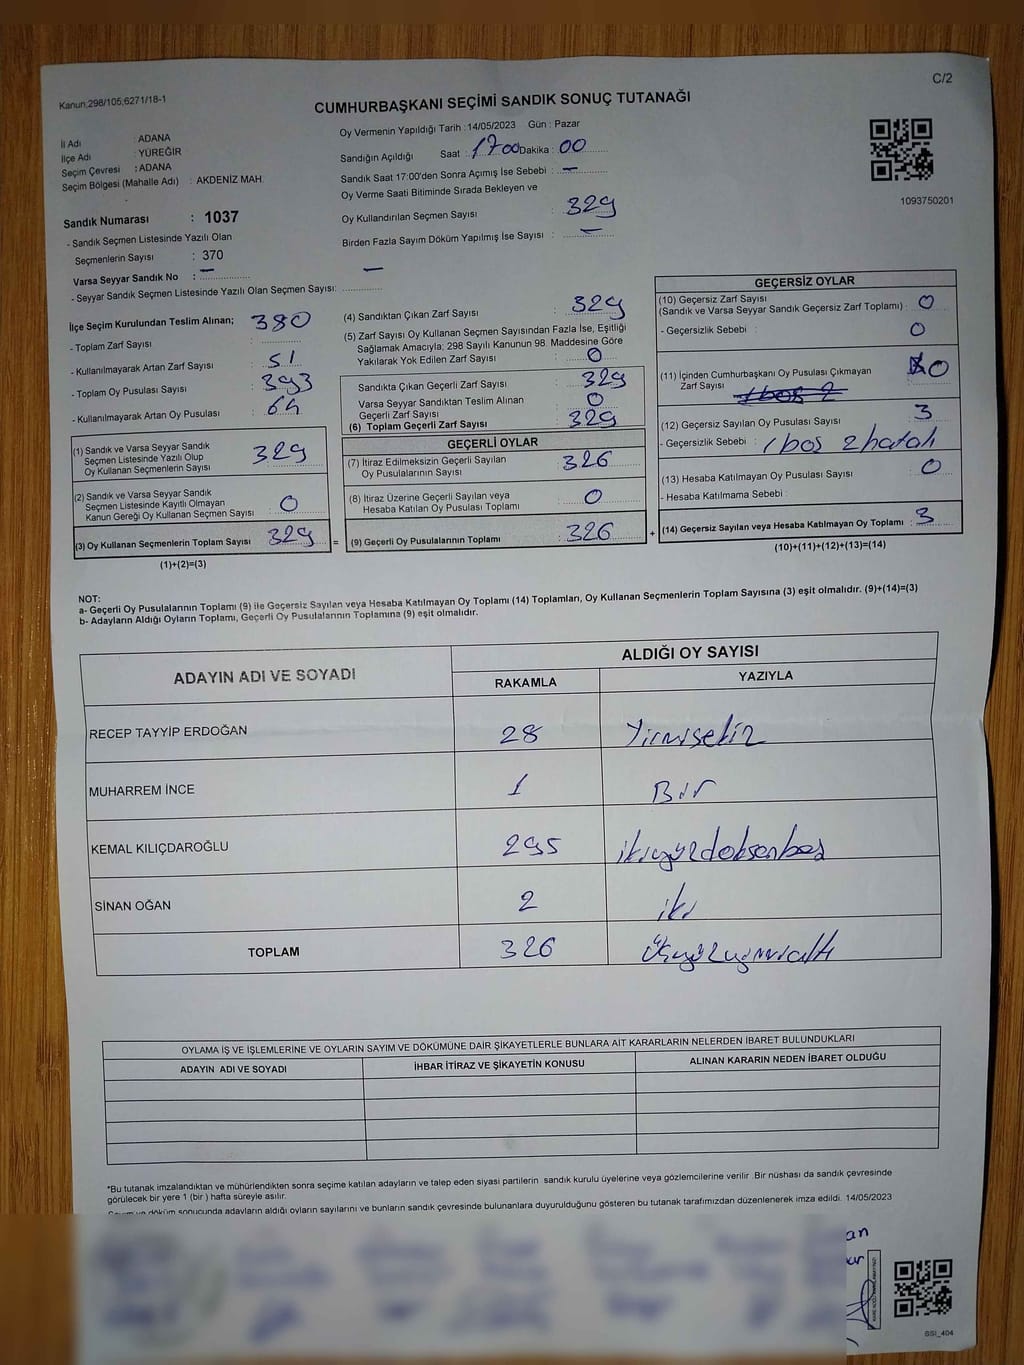 Kanun,298/105,6271/18-1
C/2
CUMHURBAŞKANI SEÇİMİ SANDIK SONUÇ TUTANAĞI
İl Adı : ADANA
İlçe Adı : YÜREĞİR
Seçim Çevresi : ADANA
Seçim Bölgesi (Mahalle Adı) : AKDENİZ MAH.
Oy Vermenin Yapıldığı Tarih : 14/05/2023 Gün : Pazar
Sandığın Açıldığı Saat : 1700 Dakika : 00
Sandık Saat 17:00'den Sonra Açımış İse Sebebi : –
Oy Verme Saati Bitiminde Sırada Bekleyen ve
Oy Kullandırılan Seçmen Sayısı : 329
Birden Fazla Sayım Döküm Yapılmış İse Sayısı : –
1093750201
Sandık Numarası : 1037
- Sandık Seçmen Listesinde Yazılı Olan
Seçmenlerin Sayısı : 370
Varsa Seyyar Sandık No : –
- Seyyar Sandık Seçmen Listesinde Yazılı Olan Seçmen Sayısı: –
İlçe Seçim Kurulundan Teslim Alınan; 380
- Toplam Zarf Sayısı :
- Kullanılmayarak Artan Zarf Sayısı : 51
- Toplam Oy Pusulası Sayısı : 393
- Kullanılmayarak Artan Oy Pusulası : 64
(1) Sandık ve Varsa Seyyar Sandık
Seçmen Listesinde Yazılı Olup
Oy Kullanan Seçmenlerin Sayısı : 329
(2) Sandık ve Varsa Seyyar Sandık
Seçmen Listesinde Kayıtlı Olmayan
Kanun Gereği Oy Kullanan Seçmen Sayısı : 0
(3) Oy Kullanan Seçmenlerin Toplam Sayısı : 329 =
(1)+(2)=(3)
(4) Sandıktan Çıkan Zarf Sayısı : 329
(5) Zarf Sayısı Oy Kullanan Seçmen Sayısından Fazla İse, Eşitliği
Sağlamak Amacıyla; 298 Sayılı Kanunun 98. Maddesine Göre
Yakılarak Yok Edilen Zarf Sayısı : 0
Sandıkta Çıkan Geçerli Zarf Sayısı : 329
Varsa Seyyar Sandıktan Teslim Alınan
Geçerli Zarf Sayısı : 0
(6) Toplam Geçerli Zarf Sayısı : 329
GEÇERLİ OYLAR
(7) İtiraz Edilmeksizin Geçerli Sayılan
Oy Pusulalarının Sayısı : 326
(8) İtiraz Üzerine Geçerli Sayılan veya
Hesaba Katılan Oy Pusulası Toplamı : 0
(9) Geçerli Oy Pusulalarının Toplamı : 326 +
GEÇERSİZ OYLAR
(10) Geçersiz Zarf Sayısı
(Sandık ve Varsa Seyyar Sandık Geçersiz Zarf Toplamı) : 0
- Geçersizlik Sebebi : 0
(11) İçinden Cumhurbaşkanı Oy Pusulası Çıkmayan
Zarf Sayısı : 0
1 boş 2
(12) Geçersiz Sayılan Oy Pusulası Sayısı : 3
- Geçersizlik Sebebi : 1 boş 2 hatalı
(13) Hesaba Katılmayan Oy Pusulası Sayısı : 0
- Hesaba Katılmama Sebebi :
(14) Geçersiz Sayılan veya Hesaba Katılmayan Oy Toplamı : 3
(10)+(11)+(12)+(13)=(14)
NOT:
a- Geçerli Oy Pusulalarının Toplamı (9) ile Geçersiz Sayılan veya Hesaba Katılmayan Oy Toplamı (14) Toplamları, Oy Kullanan Seçmenlerin Toplam Sayısına (3) eşit olmalıdır. (9)+(14)=(3)
b- Adayların Aldığı Oyların Toplamı, Geçerli Oy Pusulalarının Toplamına (9) eşit olmalıdır.
ADAYIN ADI VE SOYADI
ALDIĞI OY SAYISI
RAKAMLA YAZIYLA
RECEP TAYYİP ERDOĞAN 28 Yirmisekiz
MUHARREM İNCE 1 Bir
KEMAL KILIÇDAROĞLU 295 ikiyüzdoksanbeş
SİNAN OĞAN 2 iki
TOPLAM 326 Üçyüzyirmialtı
OYLAMA İŞ VE İŞLEMLERİNE VE OYLARIN SAYIM VE DÖKÜMÜNE DAİR ŞİKAYETLERLE BUNLARA AİT KARARLARIN NELERDEN İBARET BULUNDUKLARI
ADAYIN ADI VE SOYADI İHBAR İTİRAZ VE ŞİKAYETİN KONUSU ALINAN KARARIN NEDEN İBARET OLDUĞU
*Bu tutanak imzalandıktan ve mühürlendikten sonra seçime katılan adayların ve talep eden siyasi partilerin sandık kurulu üyelerine veya gözlemcilerine verilir .Bir nüshası da sandık çevresinde
görülecek bir yere 1 (bir ) hafta süreyle asılır.
Sayım ve döküm sonucunda adayların aldığı oyların sayılarını ve bunların sandık çevresinde bulunanlara duyurulduğunu gösteren bu tutanak tarafımızdan düzenlenerek imza edildi. 14/05/2023
SSI_404